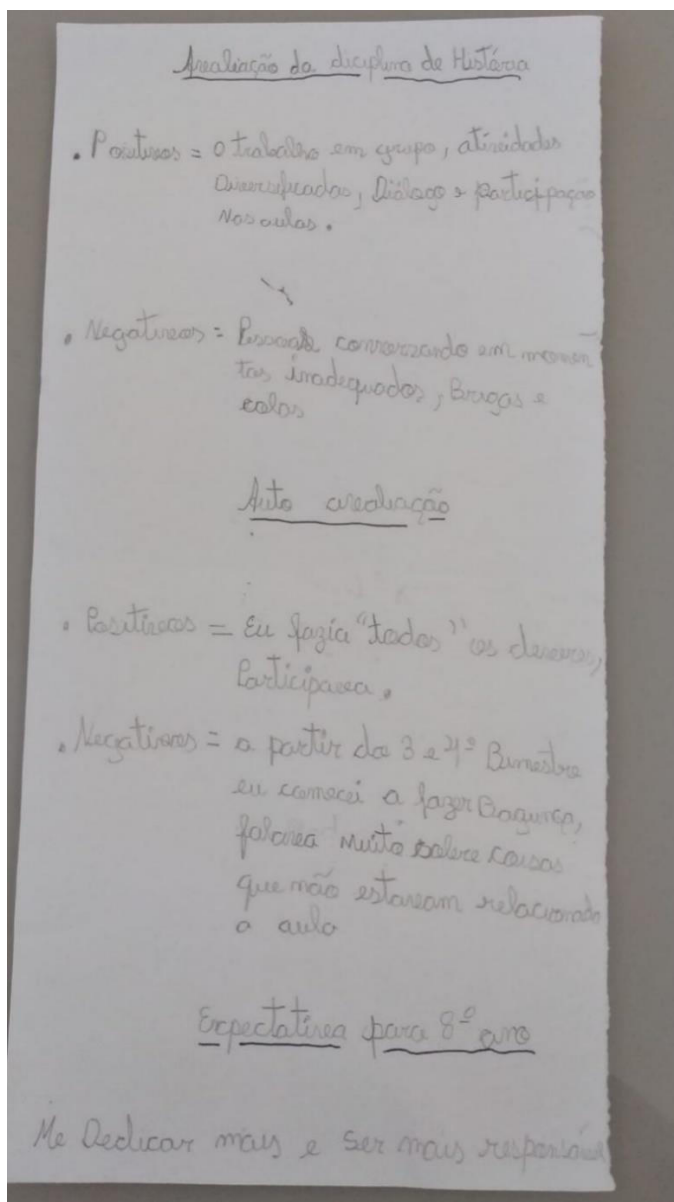 Avaliação da diciplina de História
. Positivos = O trabalho em grupo, atividades
Diversificadas, Diálogo e participação
Nas aulas.
. Negativos = Pessoas conversando em momen
tos inadequados, Brigas e
colas
Auto avaliação
. Positivos = Eu fazia "todos" os deveres,
Participava.
. Negativos = a partir do 3 e 4º Bimestre
eu comecei a fazer Bagunça,
falava muito sobre coisas
que não estavam relacionado
a aula
Expectativa para 8º ano
Me Dedicar mais e Ser mais responsável